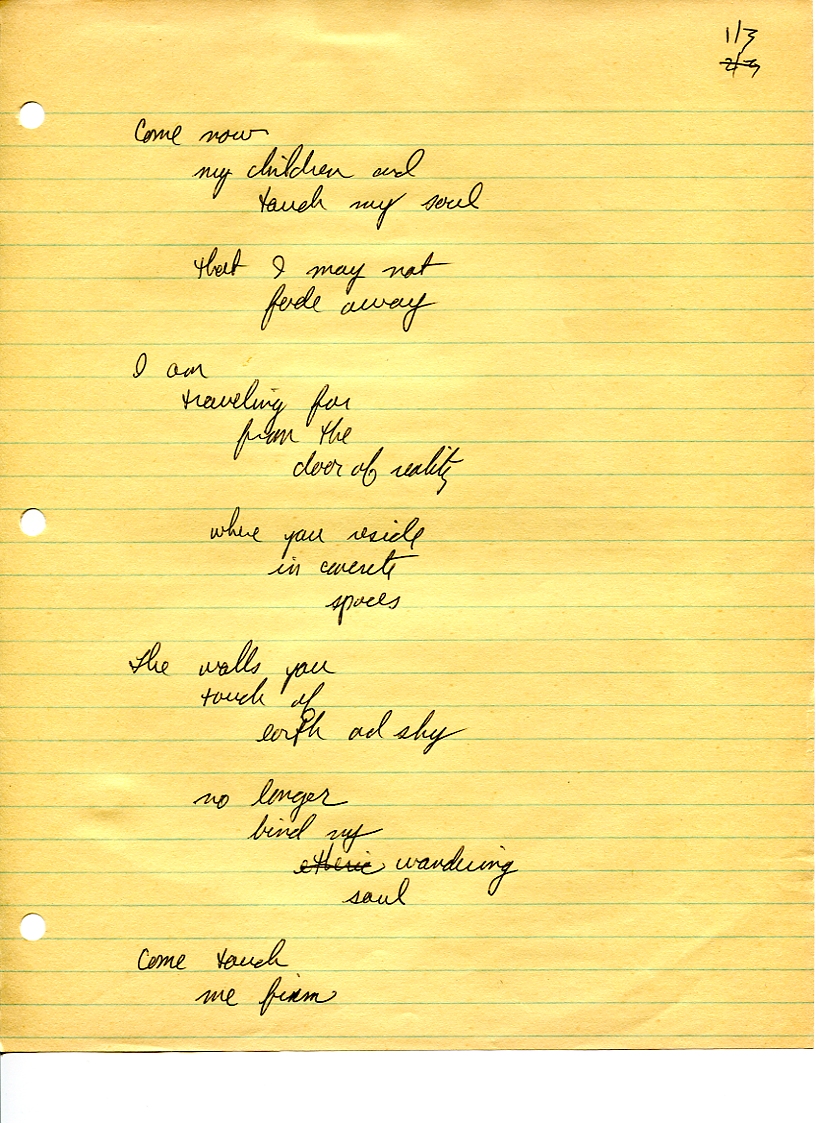 1/3
2/3
Come now
my children and
touch my soul
that I may not
fade away
I am
traveling far
from the
door of reality
where you reside
in concrete
spaces
The walls you
touch of
earth and sky
no longer
bind my
etheric wandering
soul
Come touch
me firm